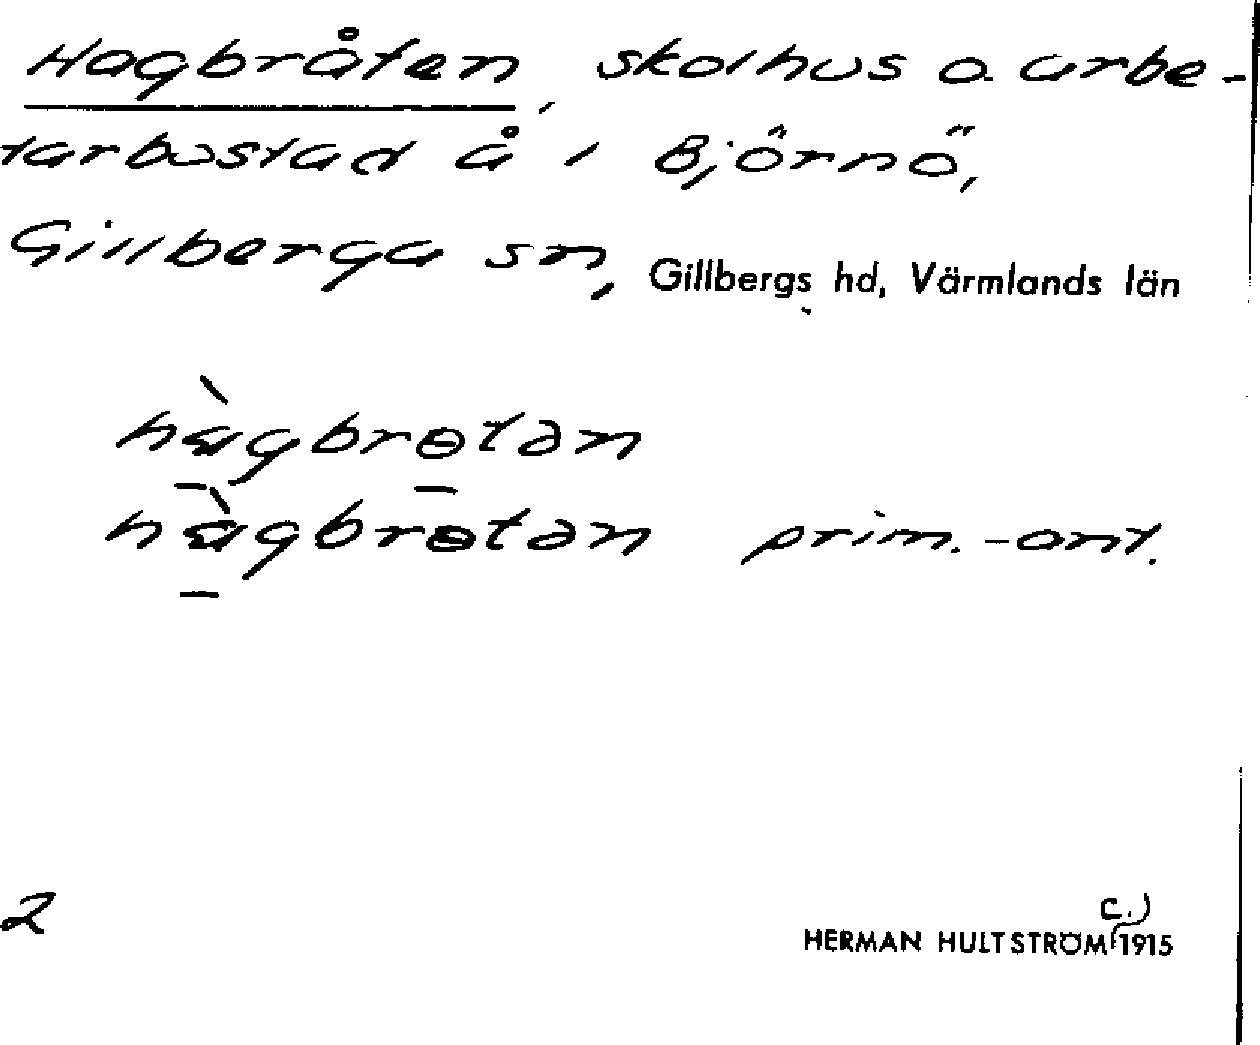 Hagbråten, skolhus o. arbe-
tarbostad å 1 Björnö,
Gillberga sn, Gillbergs hd, Värmlands län
hàgbrɵtən
hàgbrɵtən prim.-ant.
2
c.)
HERMAN HULTSTRÖM 1915